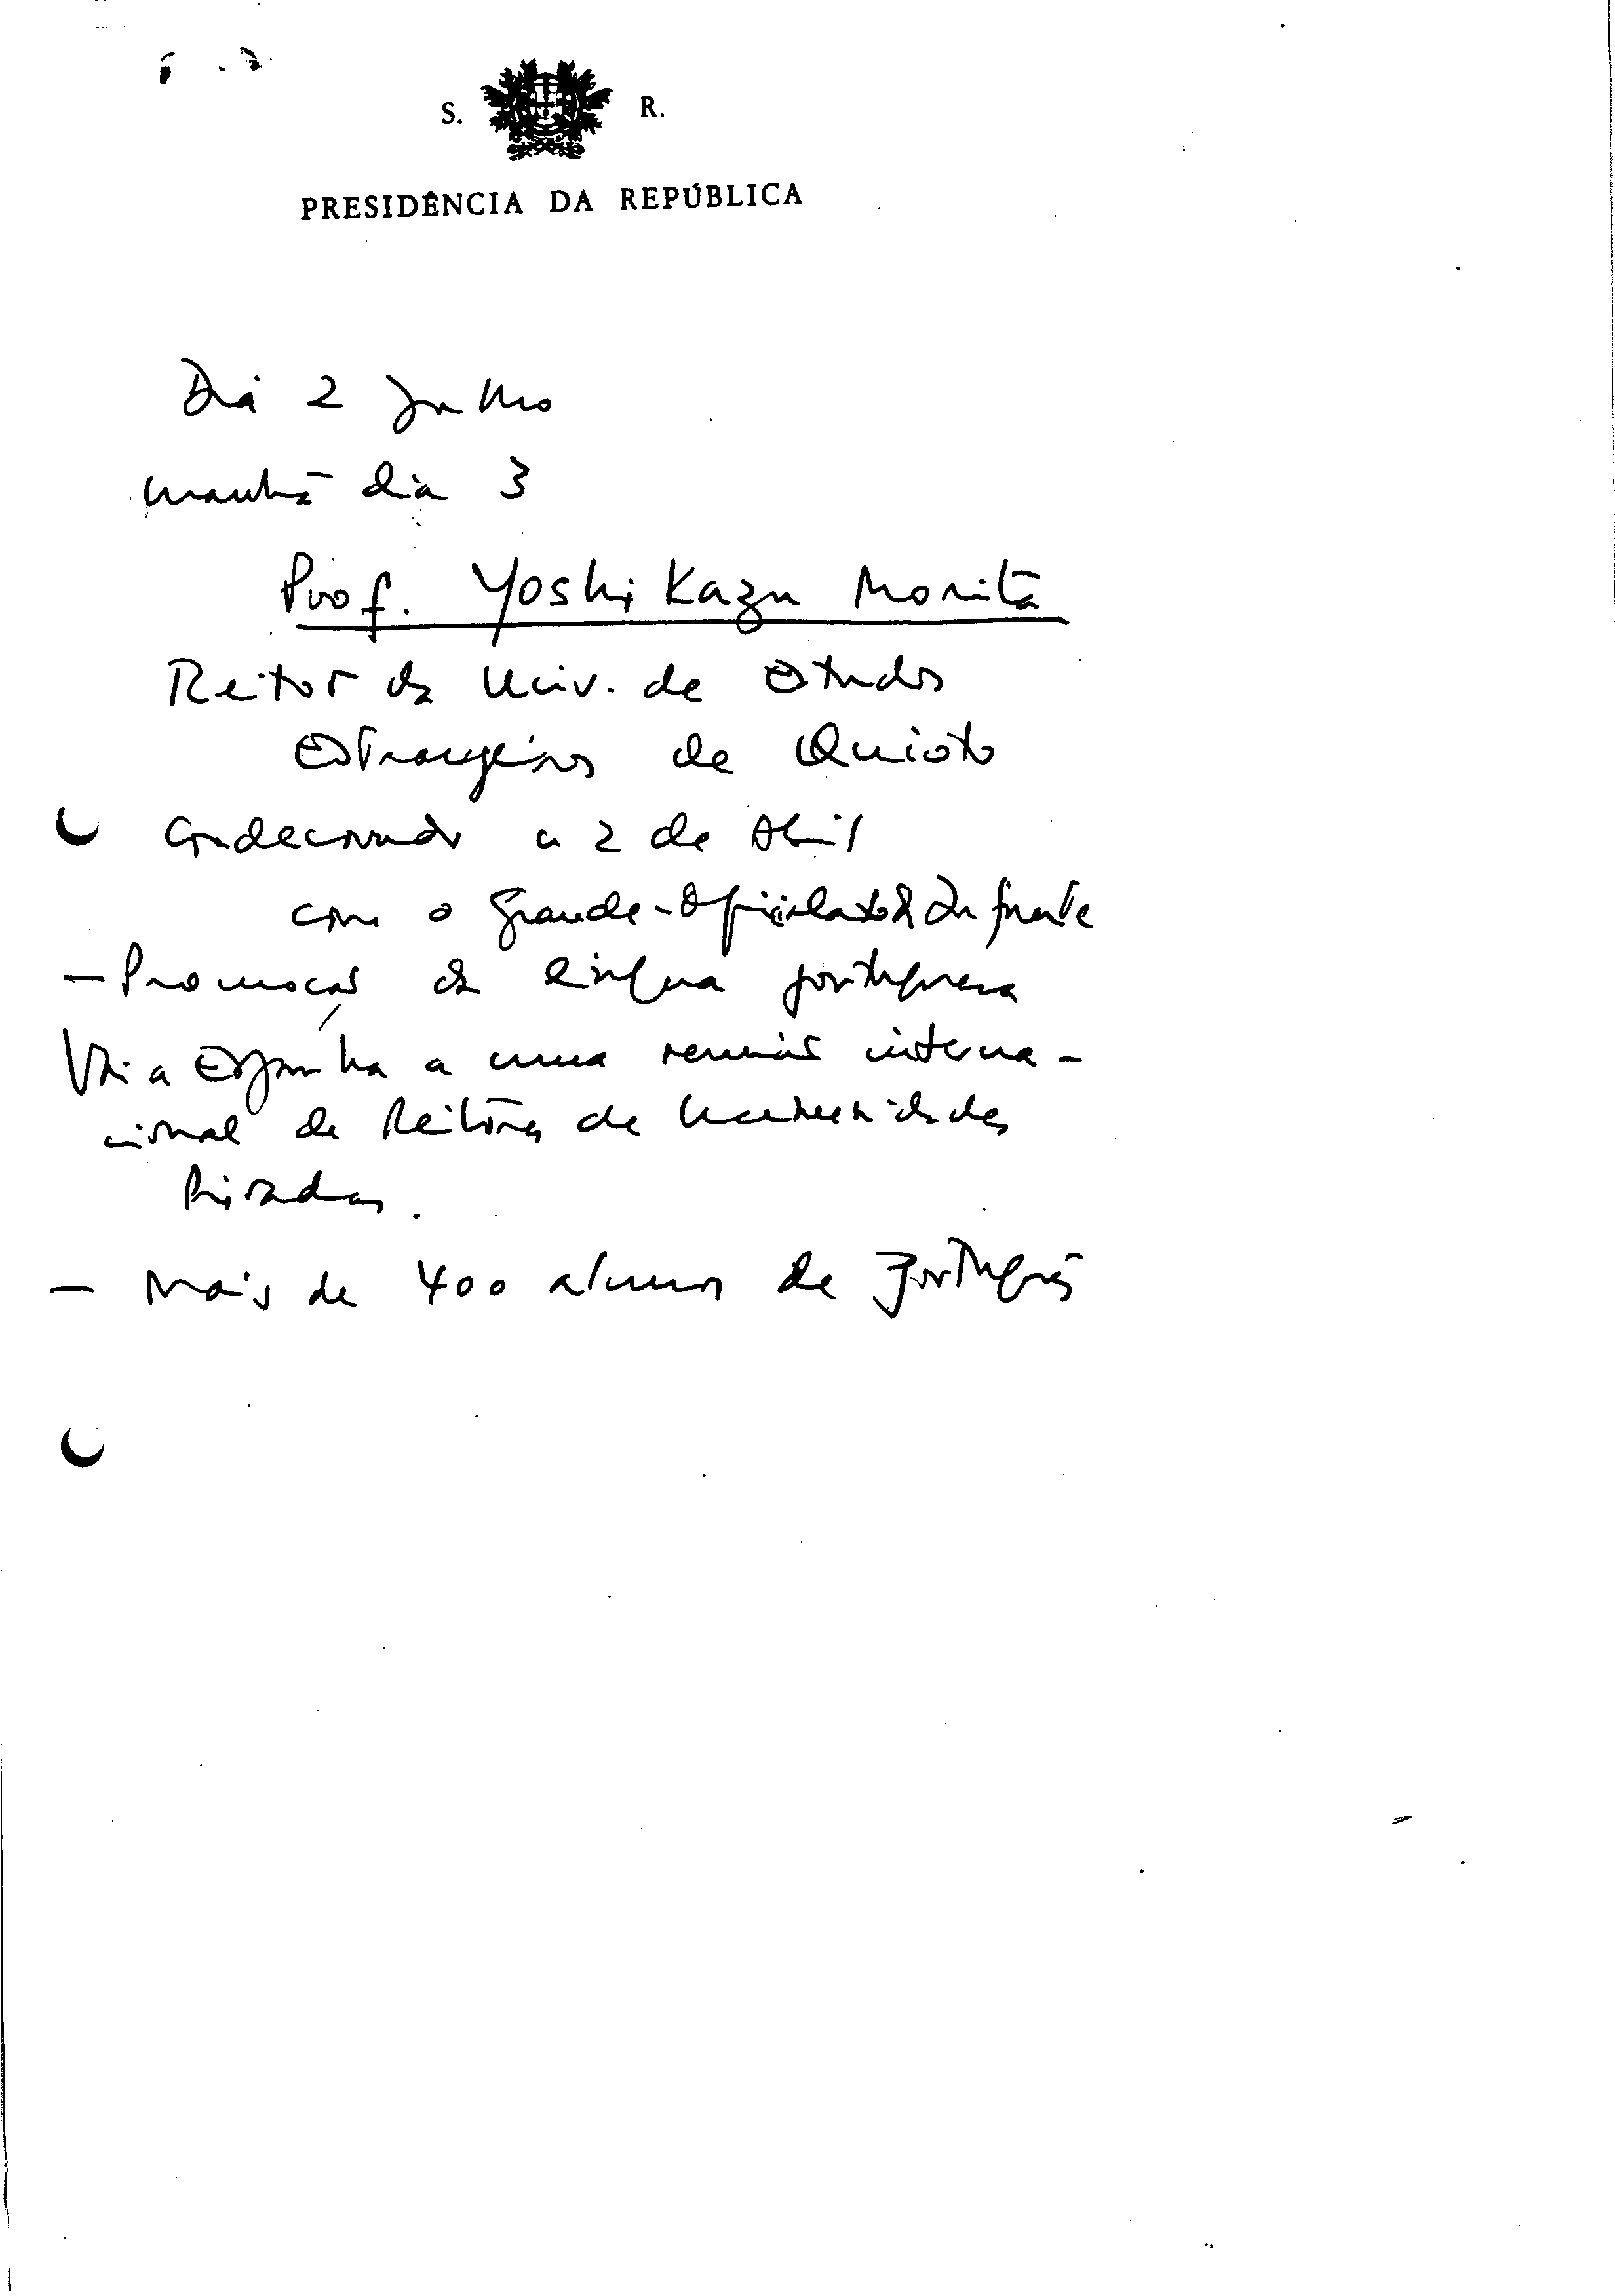 S. R.
PRESIDÊNCIA DA REPÚBLICA
Dia 2 Julho
manhã dia 3
Prof. Yoshikazu Morita
Reitor da Univ. de Estudos
Estrangeiros de Quioto
Condecorado a 2 de Abril
com o Grande-Oficialato do Infante
- Promoção da língua portuguesa
Vai a Espanha a uma reunião interna-
cional de Reitores de Universidades
Privadas.
- Mais de 400 alunos de Português